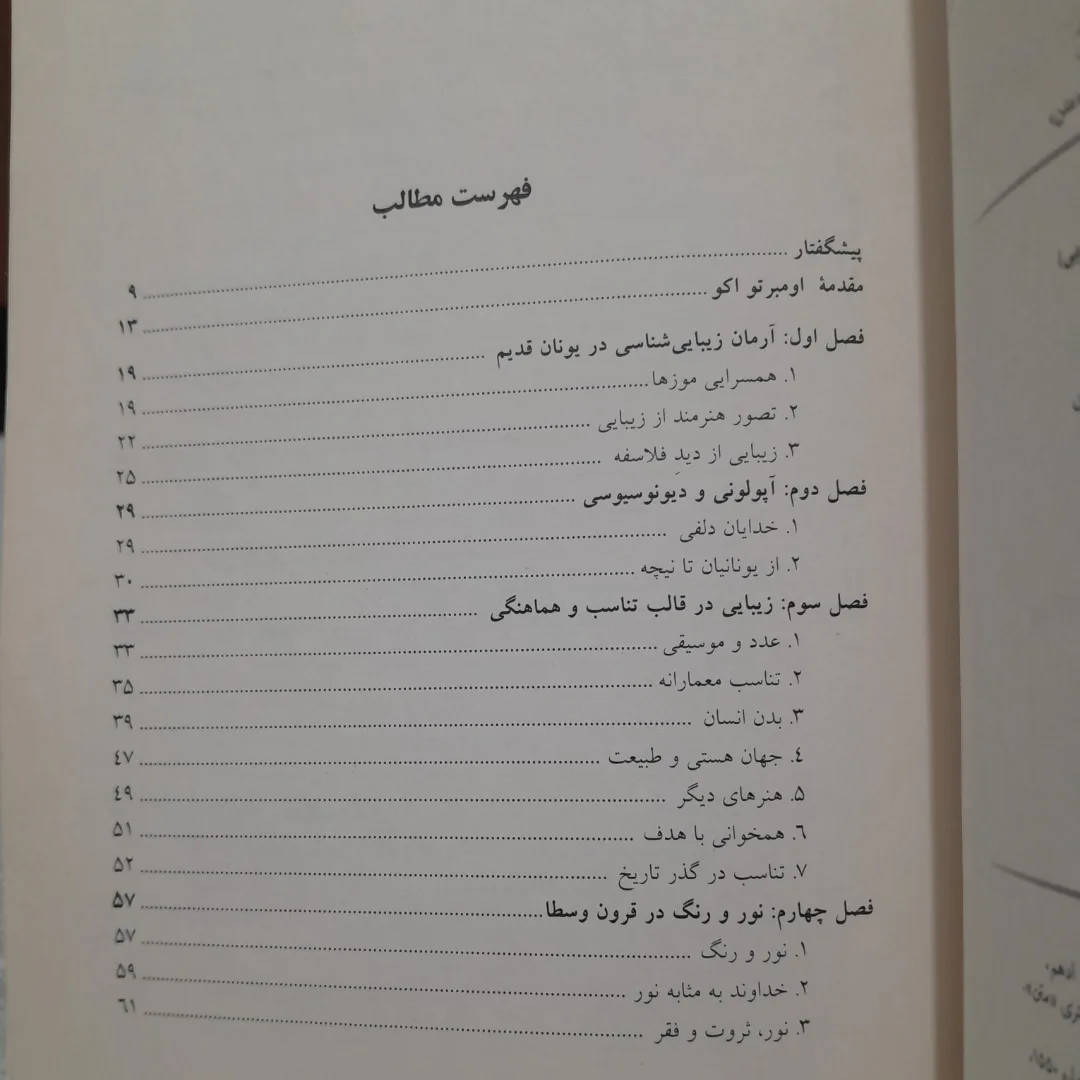 فهرست مطالب
پیشگفتار ........ ۹
مقدمهٔ اومبرتو اکو ........ ۱۳
فصل اول: آرمان زیبایی‌شناسی در یونان قدیم ........ ۱۹
۱. همسرایی موزها ........ ۱۹
۲. تصور هنرمند از زیبایی ........ ۲۲
۳. زیبایی از دیدِ فلاسفه ........ ۲۵
فصل دوم: آپولونی و دیونوسیوسی ........ ۲۹
۱. خدایان دلفی ........ ۲۹
۲. از یونانیان تا نیچه ........ ۳۰
فصل سوم: زیبایی در قالب تناسب و هماهنگی ........ ۳۳
۱. عدد و موسیقی ........ ۳۳
۲. تناسب معمارانه ........ ۳۵
۳. بدن انسان ........ ۳۹
۴. جهان هستی و طبیعت ........ ۴۷
۵. هنرهای دیگر ........ ۴۹
۶. همخوانی با هدف ........ ۵۱
۷. تناسب در گذر تاریخ ........ ۵۲
فصل چهارم: نور و رنگ در قرون وسطا ........ ۵۷
۱. نور و رنگ ........ ۵۷
۲. خداوند به مثابه نور ........ ۵۹
۳. نور، ثروت و فقر ........ ۶۱